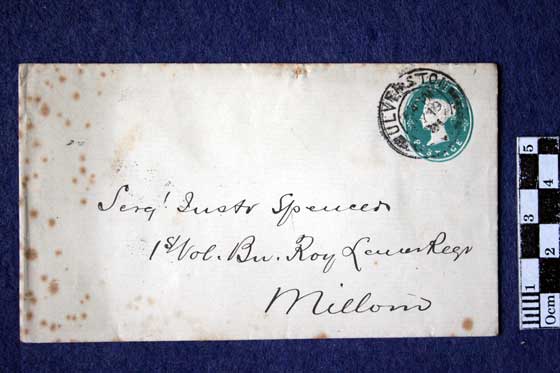 ULVERSTON
POSTAGE
Sergt Instr Spencer
1st Vol. Bn. Roy Lanc Regt
Millom
5
4
3
2
1
0cm